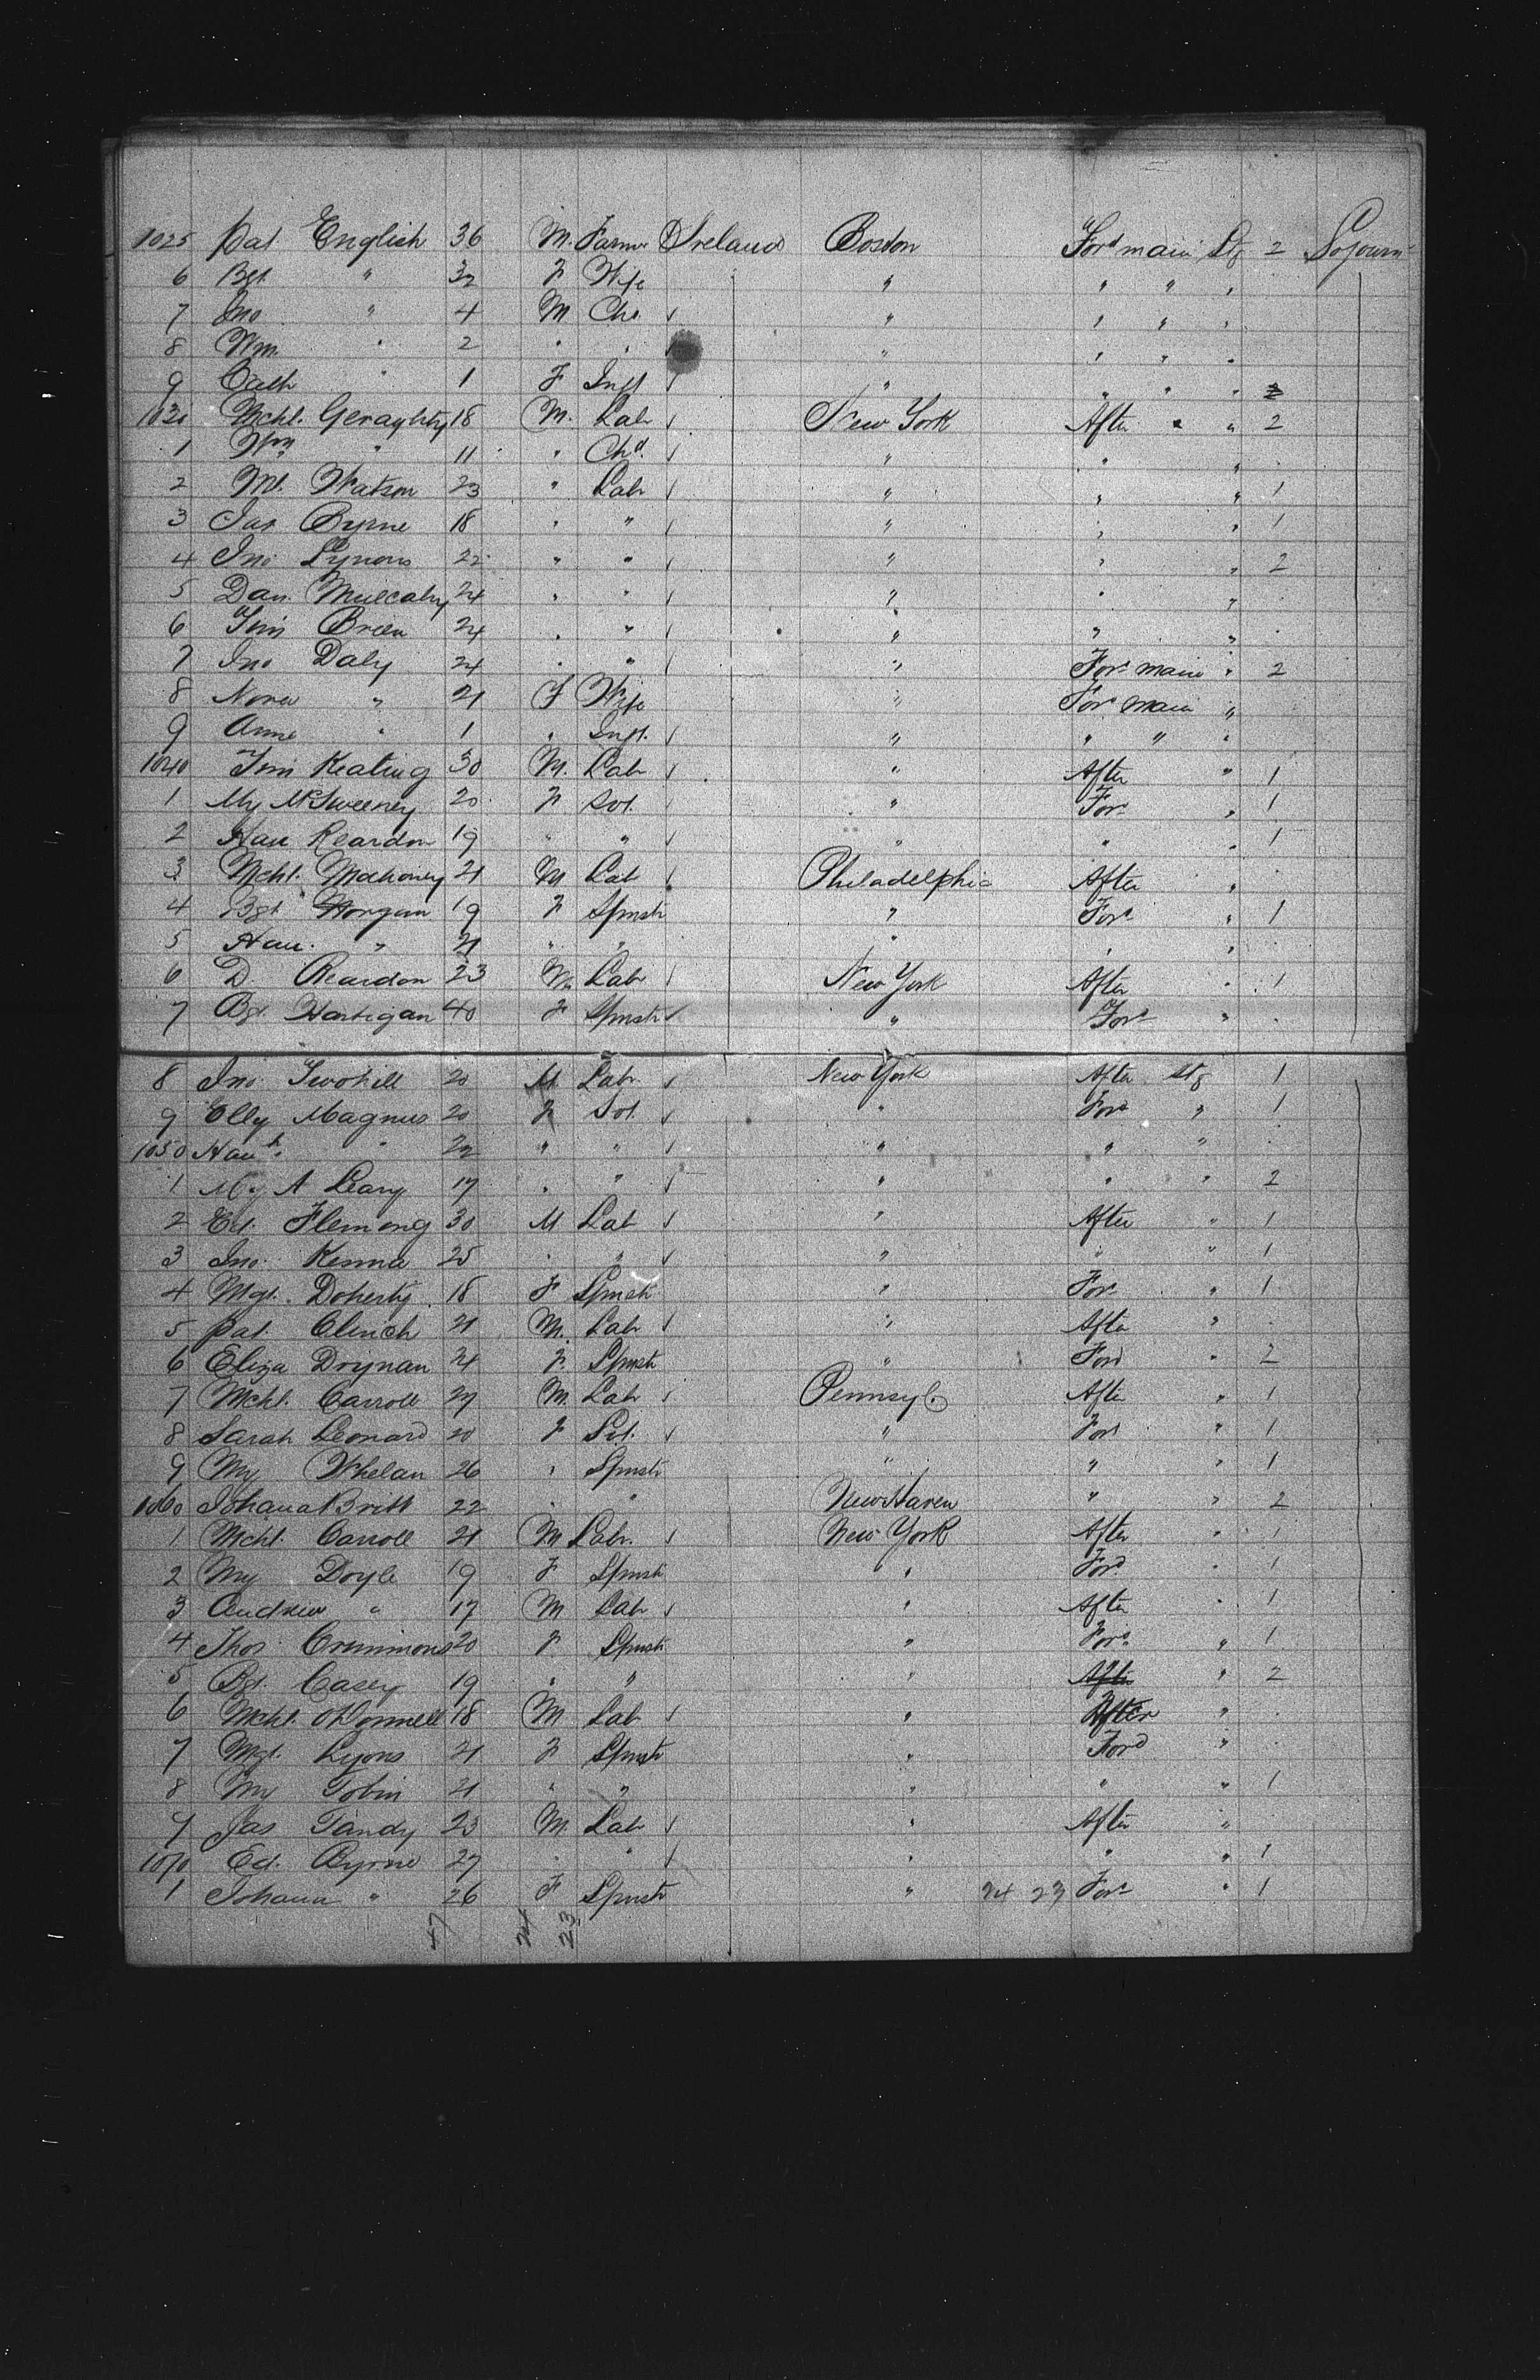 1025 Pat English 36 M. Farmr Ireland Boston Ford main Stg 2 Sojourn
6 Bgt " 32 F Wife " " " "
7 Jno " 4 M Chd. " " " "
8 Wm. " 2 " " " " " "
9 Cath " 1 F Inft " " " " 2
1030 Mchl. Geraghty 18 M. Labr New York After " " 2
1 Wm " 11 " Chd. " " "
2 Ml. Watson 23 " Labr " " " 1
3 Jas Byrne 18 " " " " " 1
4 Jno Lynons 22 " " " " " 2
5 Dan. Mulcahy 24 " " " " "
6 Tim Breen 24 " " " " "
7 Jno Daly 24 " " " For main " 2
8 Nora " 21 F Wife " For main "
9 Anne " 1 " Inft. " " " "
1040 Tim Keating 30 M. Labr " After " 1
1 My McSweeney 20 F. Svt. " For " 1
2 Han Reardon 19 " " " " " 1
3 Mchl. Mahoney 21 M Lab Philadelphia After "
4 Bgt Horgan 19 F Spnstr " For " 1
5 Han. " 21 " " " " "
6 D. Reardon 23 M Labr New York After " 1
7 Bgt. Hartigan 40 F Spnstr " For "
8 Jno. Twohill 20 M Labr New York After Stg 1
9 Elly Magnus 20 F Svt. " Ford " 1
1050 Hanh. " 22 " " " " "
1 My A Leary 17 " " " " " 2
2 Ed. Flemong 30 M Lab " After " 1
3 Jno. Kenna 25 " " " " " 1
4 Mgt. Doherty 18 F Spnstr " For " 1
5 Pat. Clinch 21 M. Labr " After "
6 Eliza Drynan 24 F. Spnstr " Ford " 2
7 Mchl. Carroll 27 M. Labr Pennsyl. After " 1
8 Sarah Leonard 20 F Svt. " Ford " 1
9 My Whelan 26 " Spnstr " " " 1
1060 Johana Britt 22 " " New Haven " " 2
1 Mchl. Carroll 21 M Labr. New York After " 1
2 My Doyle 19 F Spnstr " Ford " 1
3 Andrew " 17 M Labr " After " 1
4 Thos. Crimmons 20 F. Spnstr " Ford " 1
5 Bgt. Casey 19 " " " After " 2
6 Mchl. ODonnell 18 M Lab " After "
7 Mgt. Lyons 21 F Spnstr " Ford "
8 My Tobin 21 " " " " " 1
9 Jas Tandy 23 M. Labr " After "
1070 Ed. Byrne 27 " " " " " 1
1 Johana " 26 F Spnstr " 24 23 For " 1
47 24 23